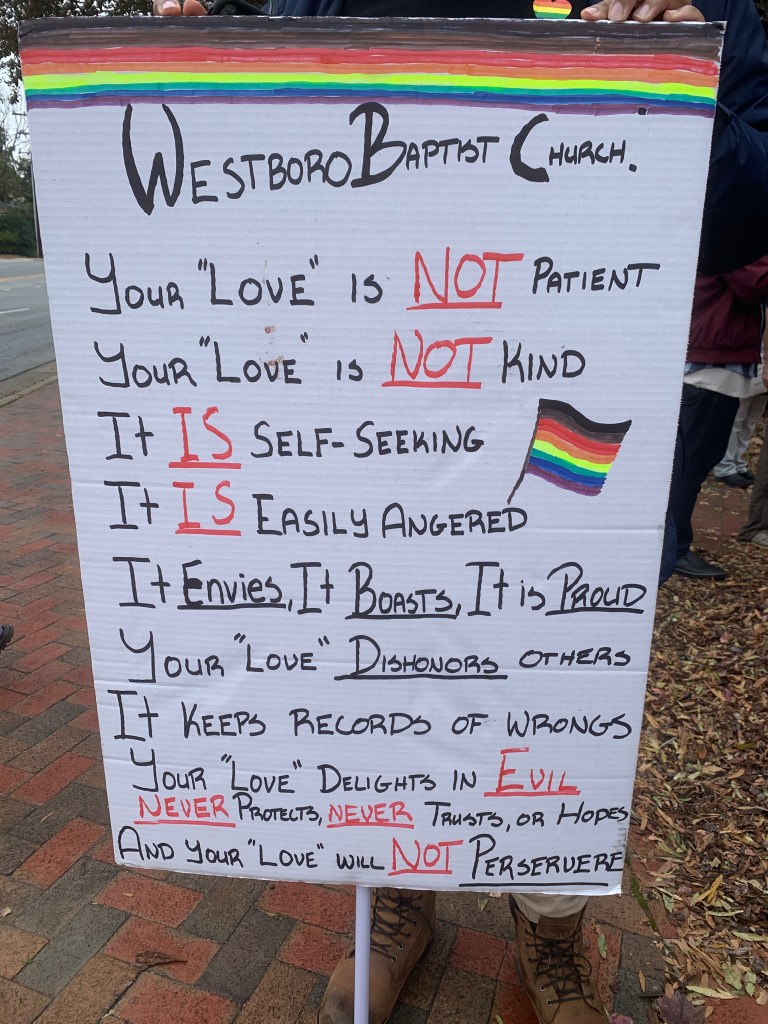 WESTBORO BAPTIST CHURCH.
YOUR "LOVE" IS NOT PATIENT
YOUR "LOVE" IS NOT KIND
It IS SELF-SEEKING
It IS EASILY ANGERED
It ENVIES, It BOASTS, It is PROUD
YOUR "LOVE" DISHONORS OTHERS
It KEEPS RECORDS OF WRONGS
YOUR "LOVE" DELIGHTS IN EVIL
NEVER PROTECTS, NEVER TRUSTS, OR HOPES
AND YOUR "LOVE" WILL NOT PERSERVERE